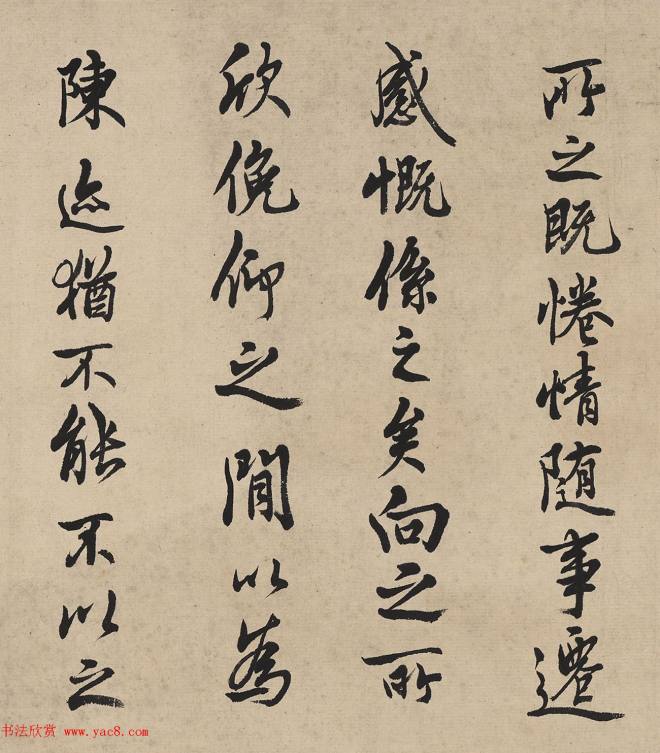 所之既惓情随事遷
感慨係之矣向之所
欣俛仰之閒以為
陳迹猶不能不以之
书法欣赏 www.yac8.com